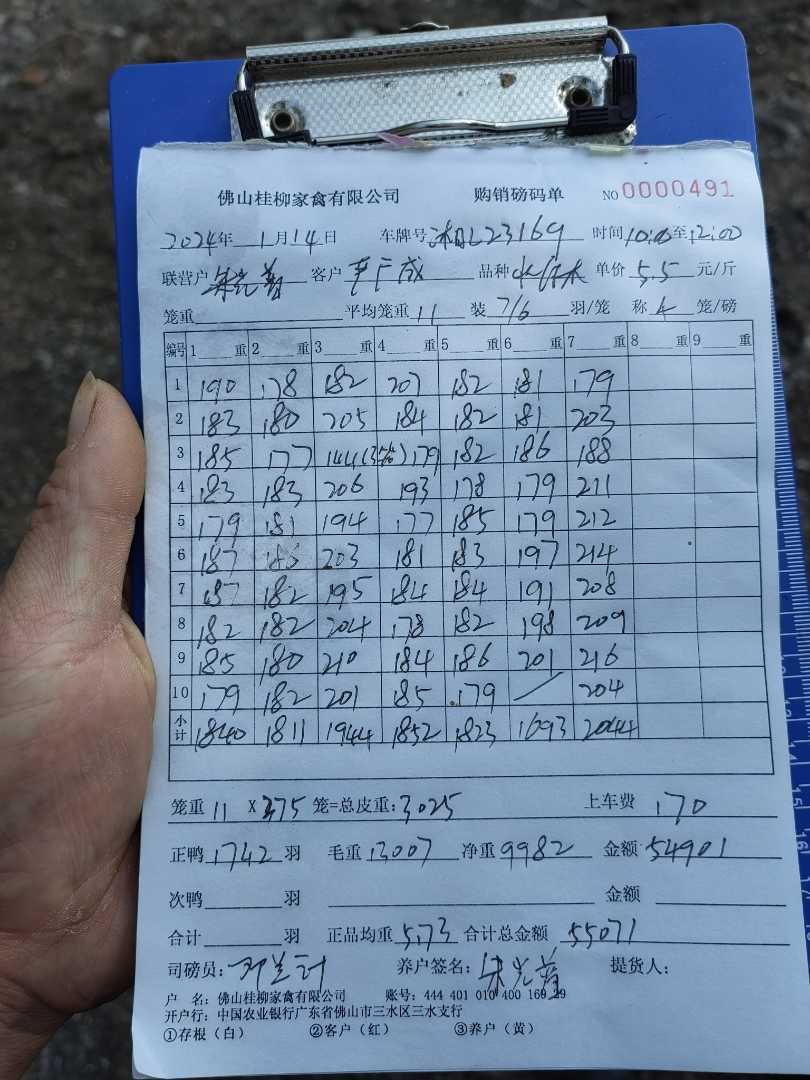 佛山桂柳家禽有限公司 购销磅码单 NO 0000491
2024年 1月14日 车牌号 L23169 时间 10:00至12:00
联营户 客户 品种 单价 5.5 元/斤
笼重 平均笼重 11 装 7/6 羽/笼 称 4 笼/磅
编号 1 重 2 重 3 重 4 重 5 重 6 重 7 重 8 重 9 重
1 190 178 182 207 182 181 179
2 183 180 205 184 182 181 203
3 185 177 144(3笼) 179 182 186 188
4 183 183 206 193 178 179 211
5 179 181 194 177 185 179 212
6 187 186 203 181 183 197 214
7 187 182 195 184 184 191 208
8 182 182 204 178 182 198 209
9 185 180 210 184 186 201 216
10 179 182 201 185 179 / 204
小计 1840 1811 1944 1852 1823 1693 2044
笼重 11 X 275 笼=总皮重:3025 上车费 170
正鸭 1742 羽 毛重 13007 净重 9982 金额 54901
次鸭 羽 金额
合计 羽 正品均重 5.73 合计总金额 55071
司磅员: 养户签名: 提货人:
户 名: 佛山桂柳家禽有限公司 账号: 444 401 010 400 169 29
开户行: 中国农业银行广东省佛山市三水区三水支行
①存根(白) ②客户(红) ③养户(黄)